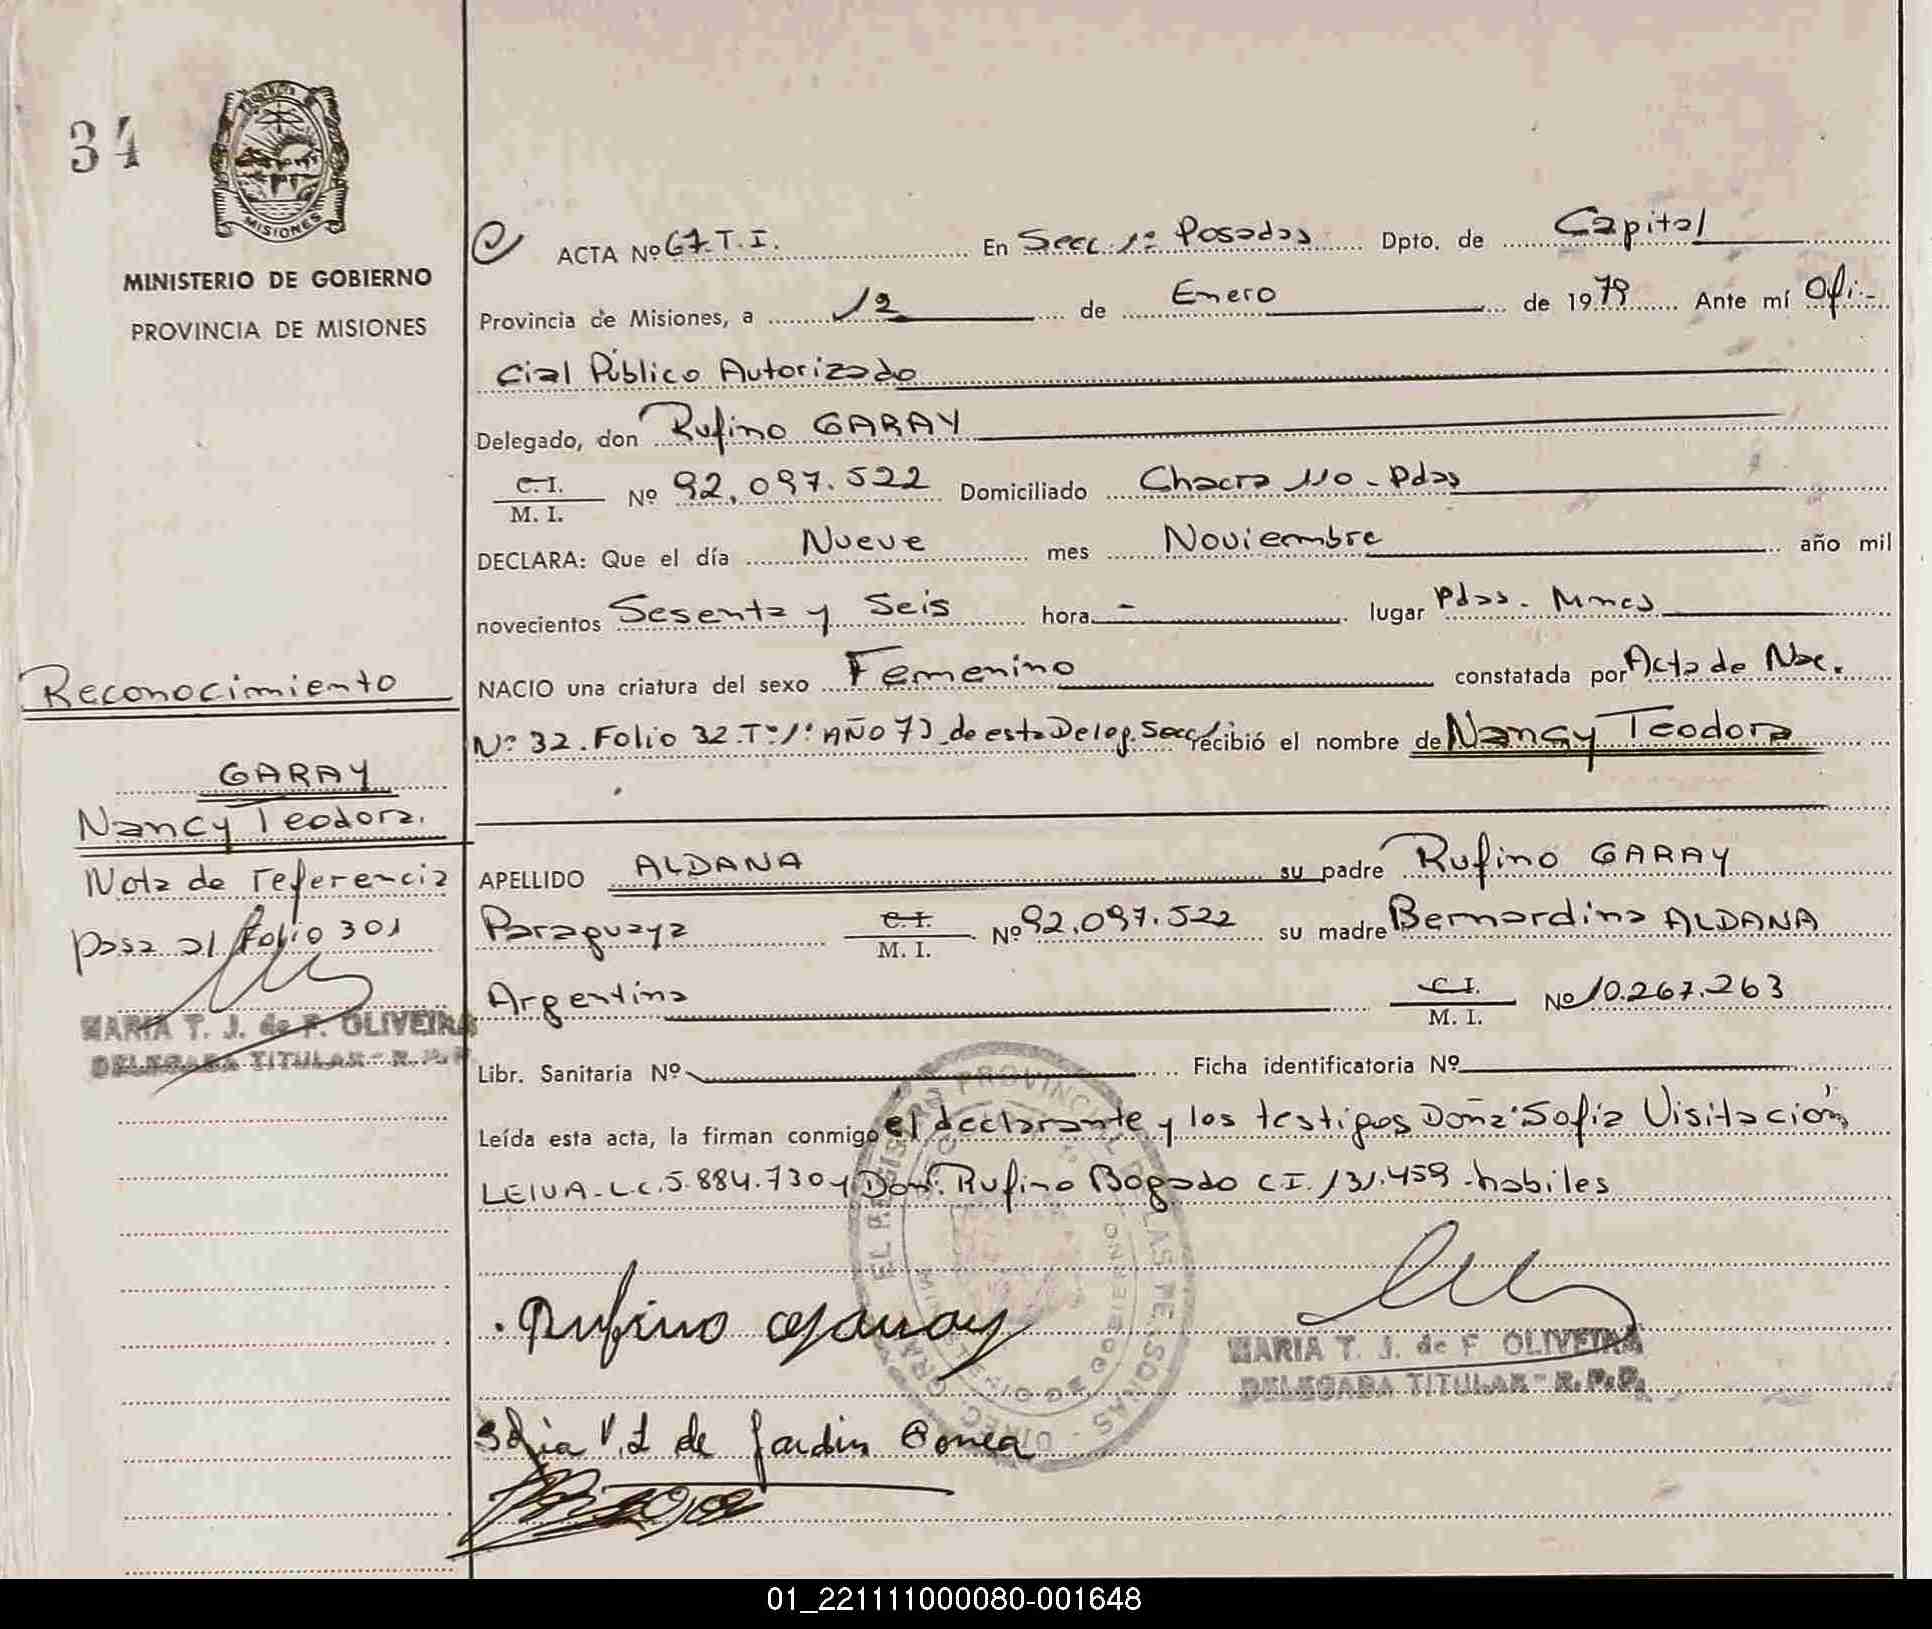 34
MISIONES
MINISTERIO DE GOBIERNO
PROVINCIA DE MISIONES
Reconocimiento
GARAY
Nancy Teodora.
Nota de referencia
pasa al folio 301
MARIA T. J. de F. OLIVEIRA
DELEGADA TITULAR - R. P. P.
ACTA Nº 67 T. I. En Secc. 1º Posadas Dpto. de Capital
Provincia de Misiones, a 12 de Enero de 1979 Ante mí Ofi-
cial Público Autorizado
Delegado, don Rufino GARAY
C.I. M. I. Nº 92.097.522 Domiciliado Chacra 110 - Pdas
DECLARA: Que el día Nueve mes Noviembre año mil
novecientos Sesenta y Seis hora - lugar Pdas. Mnes
NACIO una criatura del sexo Femenino constatada por Acta de Nac.
Nº 32. Folio 32. Tº 1º AÑO 73 de esta Deleg. Secc. recibió el nombre de Nancy Teodora
APELLIDO ALDANA su padre Rufino GARAY
Paraguaya C.I. M. I. Nº 92.097.522 su madre Bernardina ALDANA
Argentina C.I. M. I. Nº 10.267.263
Libr. Sanitaria Nº Ficha identificatoria Nº
Leída esta acta, la firman conmigo el declarante y los testigos Doña: Sofia Visitación
LEIVA - L.C. 5.884.730 y Don: Rufino Bogado C I. 131.459 - habiles
Rufino Garay
MARIA T. J. de F. OLIVEIRA
DELEGADA TITULAR - R. P. P.
Sofia V. L de Jardin
01_221111000080-001648